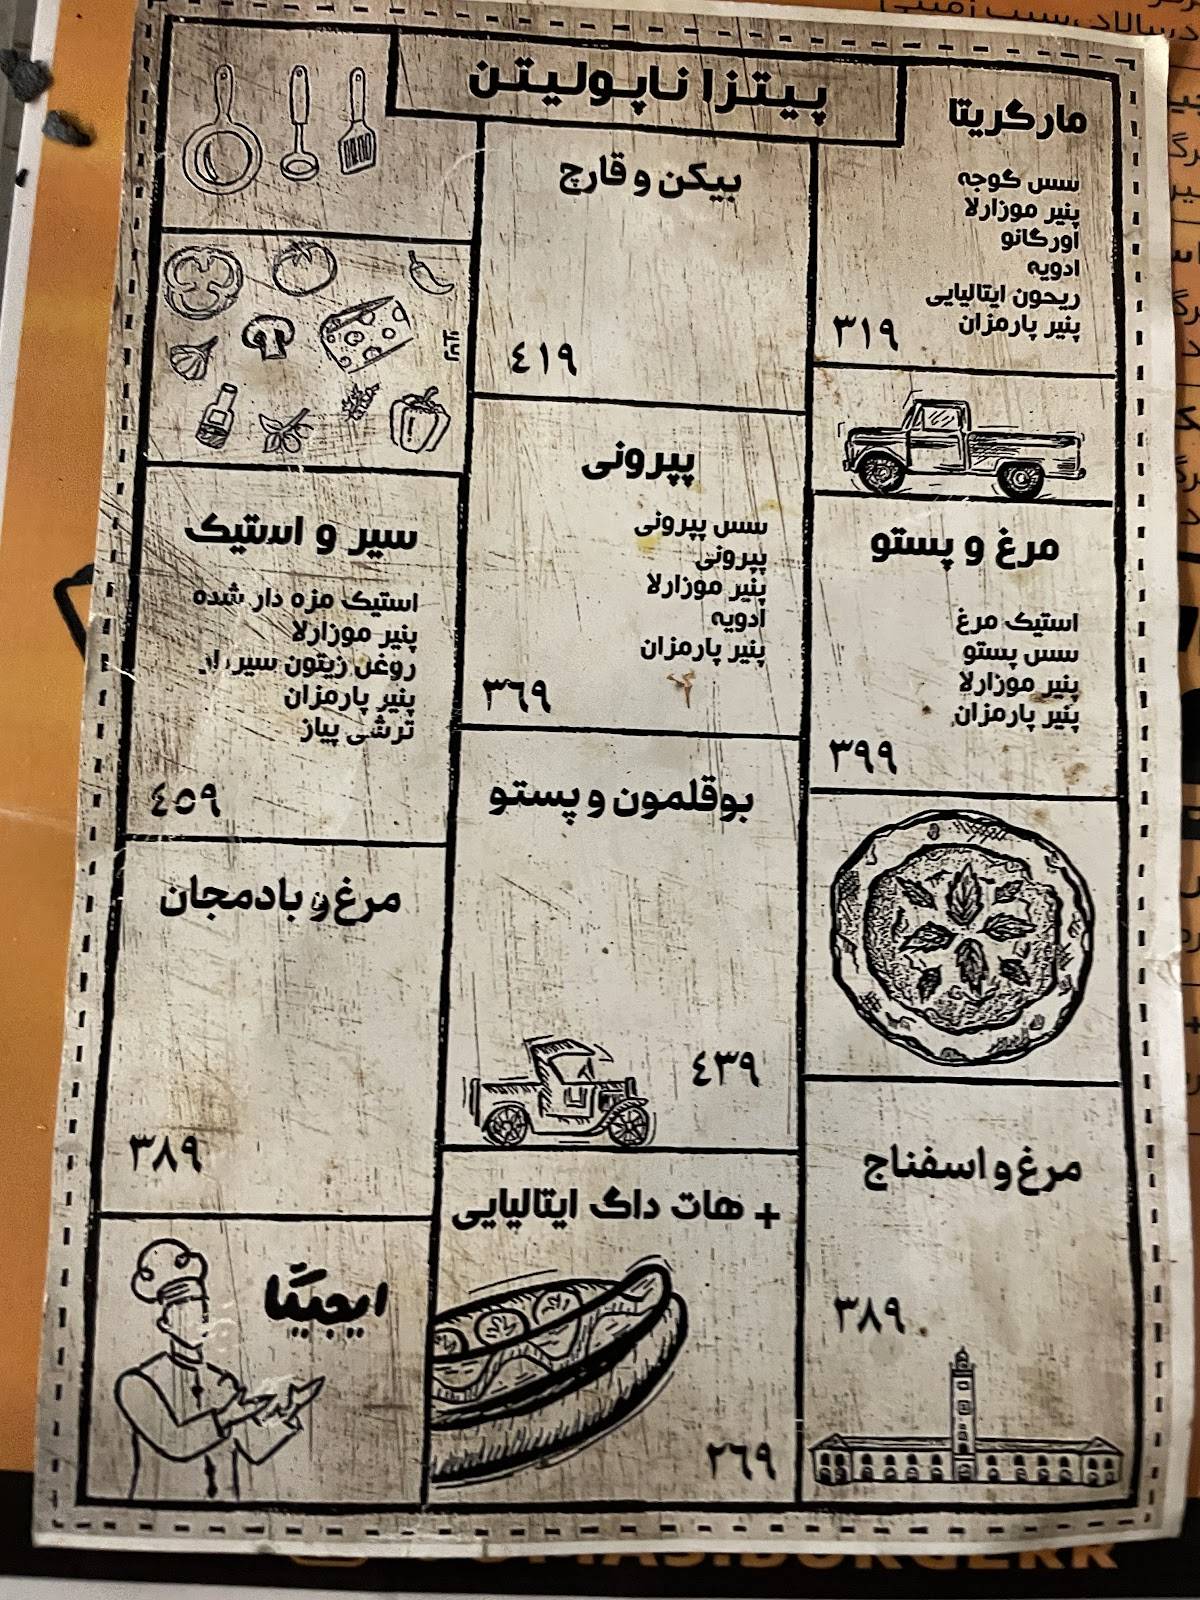 پیتزا ناپولیتن
مارگریتا
سس گوجه
پنیر موزارلا
اورگانو
ادویه
ریحون ایتالیایی
پنیر پارمزان
۳۱۹
بیکن و قارچ
٤۱۹
پپرونی
سس پپرونی
پپرونی
پنیر موزارلا
ادویه
پنیر پارمزان
۳٦۹
مرغ و پستو
استیک مرغ
سس پستو
پنیر موزارلا
پنیر پارمزان
۳۹۹
سیر و استیک
استیک مزه دار شده
پنیر موزارلا
روغن زیتون
پنیر پارمزان
ترشی پیاز
٤٥۹
بوقلمون و پستو
٤۳۹
مرغ و بادمجان
۳۸۹
مرغ و اسفناج
۳۸۹
+ هات داگ ایتالیایی
۲٦۹